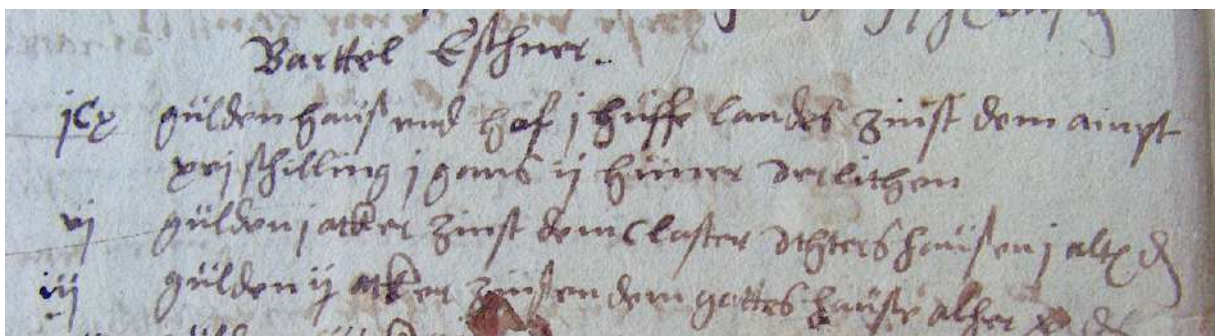 Barttel Eschner.
jCx gülden hauß und hof j huffe landes zinst dem ampt
xvj schilling j gans ij hüner verlithen
vj gülden j acker zinst dem Closter Ichtershausen j alt ₰
iij gülden ij acker zinsen dem gottes hauße alher